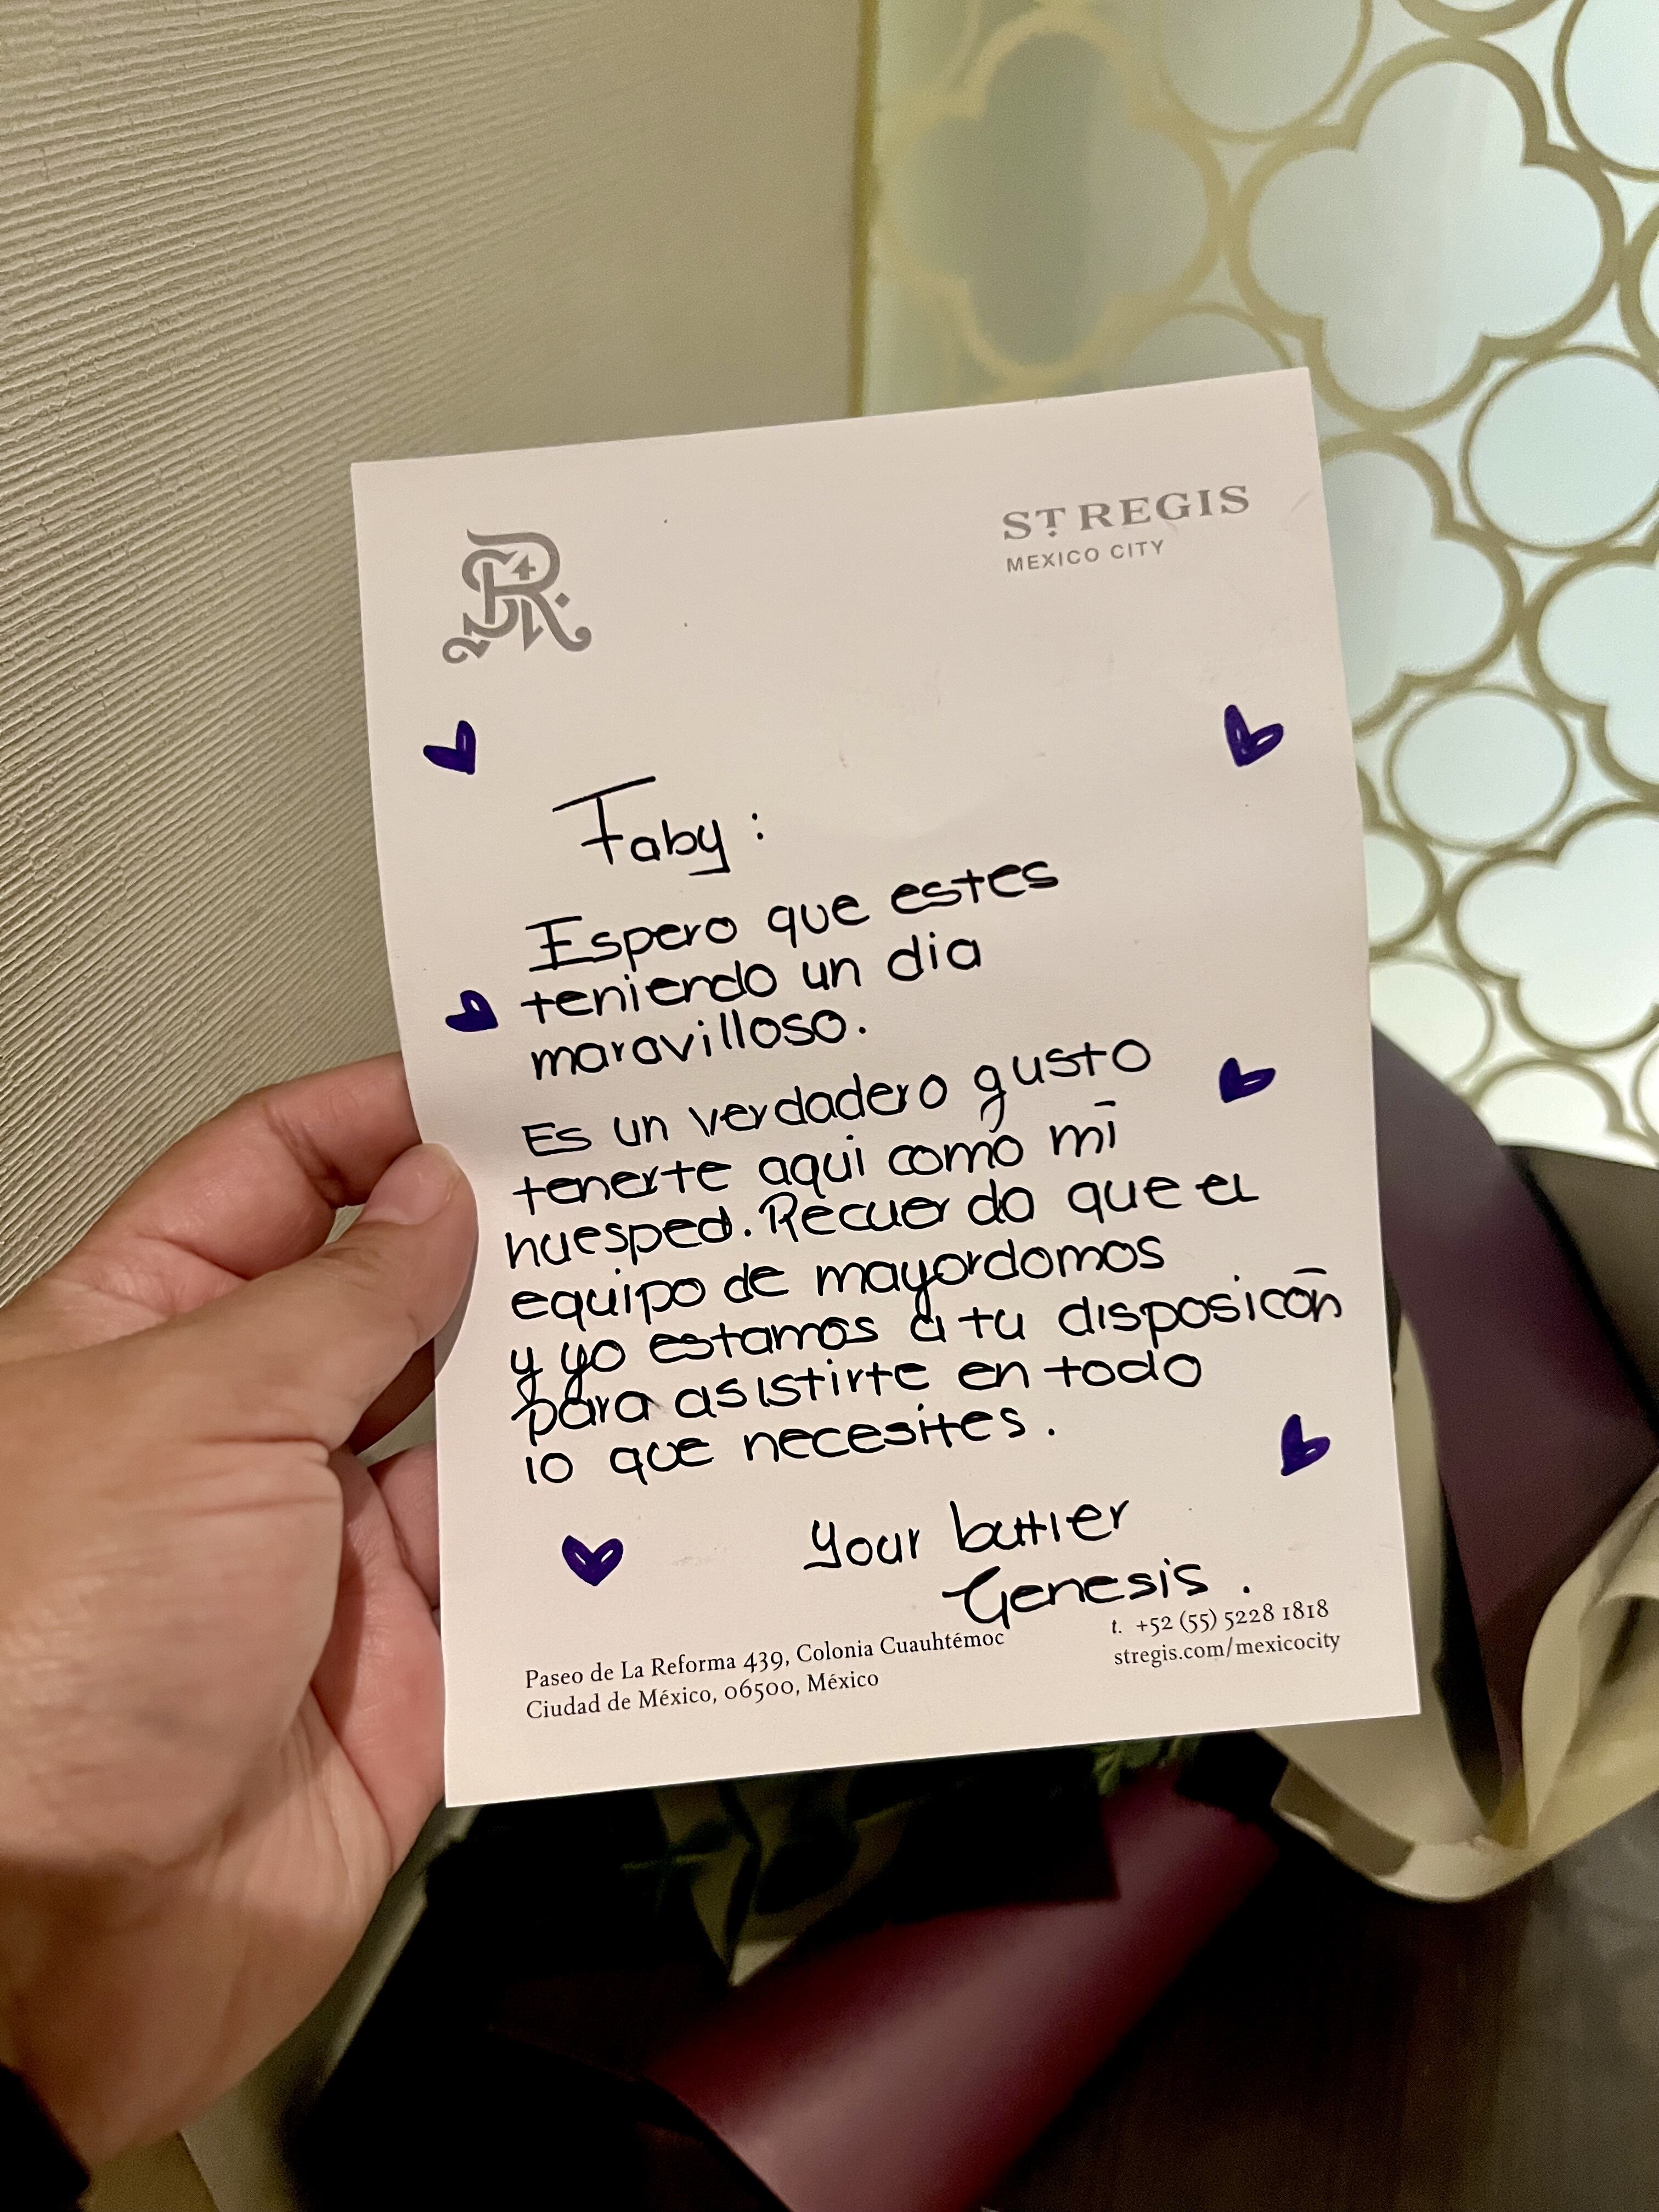 SR
ST. REGIS
MEXICO CITY
Faby:
Espero que estes
teniendo un dia
maravilloso.
Es un verdadero gusto
tenerte aqui como mi
huesped. Recuerda que el
equipo de mayordomos
y yo estamos a tu disposicōn
para asistirte en todo
lo que necesites.
Your butler
Genesis.
Paseo de La Reforma 439, Colonia Cuauhtémoc
Ciudad de México, 06500, México
t. +52 (55) 5228 1818
stregis.com/mexicocity